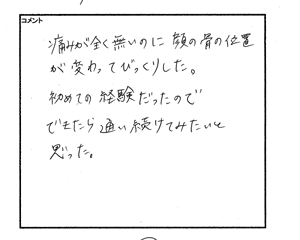 コメント
痛みが全く無いのに 顔の骨の位置
が変わってびっくりした。
初めての経験だったので
できたら通い続けてみたいと
思った。